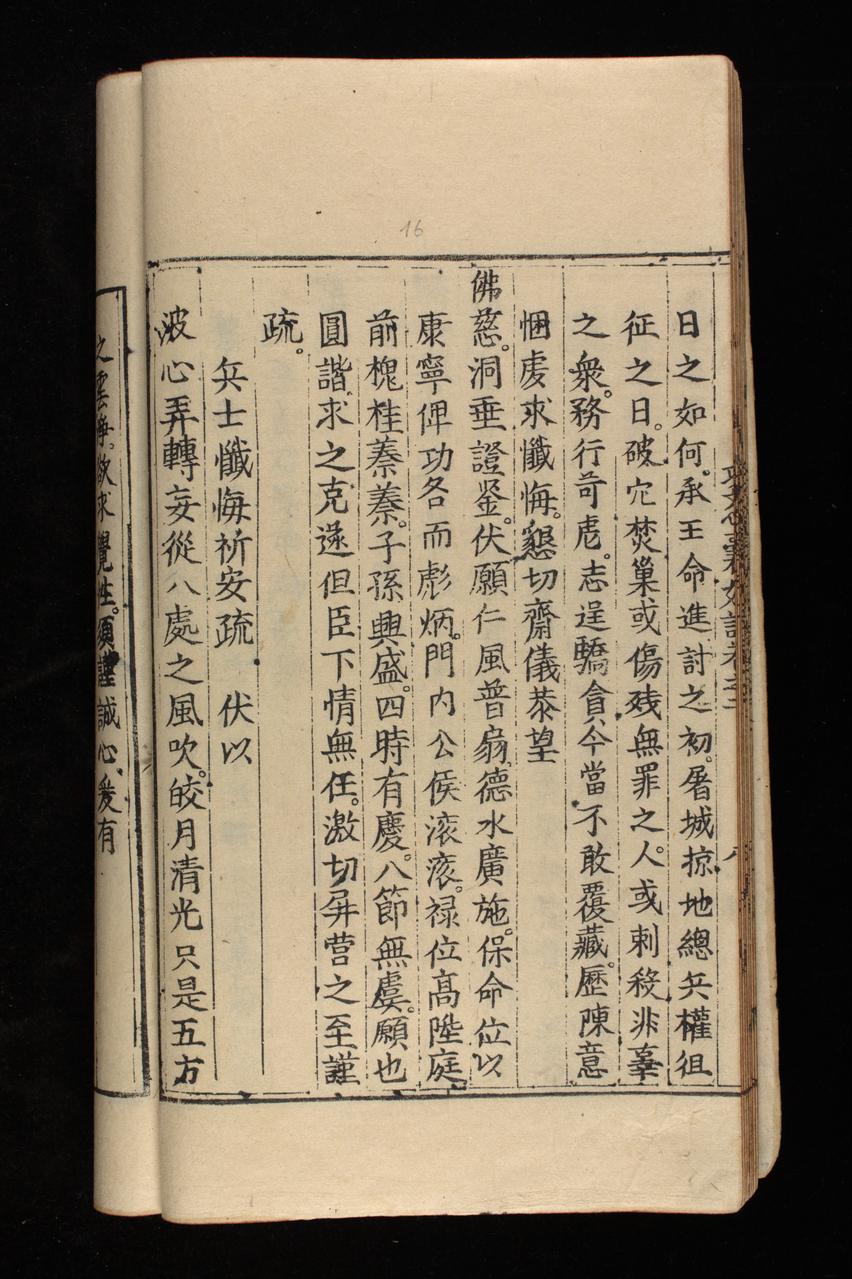 16
日之如何。承王命進討之初。屠城掠地總兵權徂
征之日。破穴焚巢或傷残無罪之人。或刺殺非辜
之衆。務行苛虐。志逞驕貪今當不敢覆藏。歷陳意
悃虔求懺悔。懇切齋儀恭望
佛慈。洞垂證鉴。伏願仁風普扇德水廣施。保命位以
康寧俾功名而彪炳。門内公侯滚滚。禄位髙陞庭
前槐桂蓁蓁。子孫興盛。四時有慶。八節無虞。願也
圓諧。求之克遂但臣下情無任。激切屏营之至謹
疏。
兵士懺悔祈安疏 伏以
波心弄轉妄從八處之風吹。皎月清光只是五方
之雲淨。欲求覺性。須謹誠心、爰有